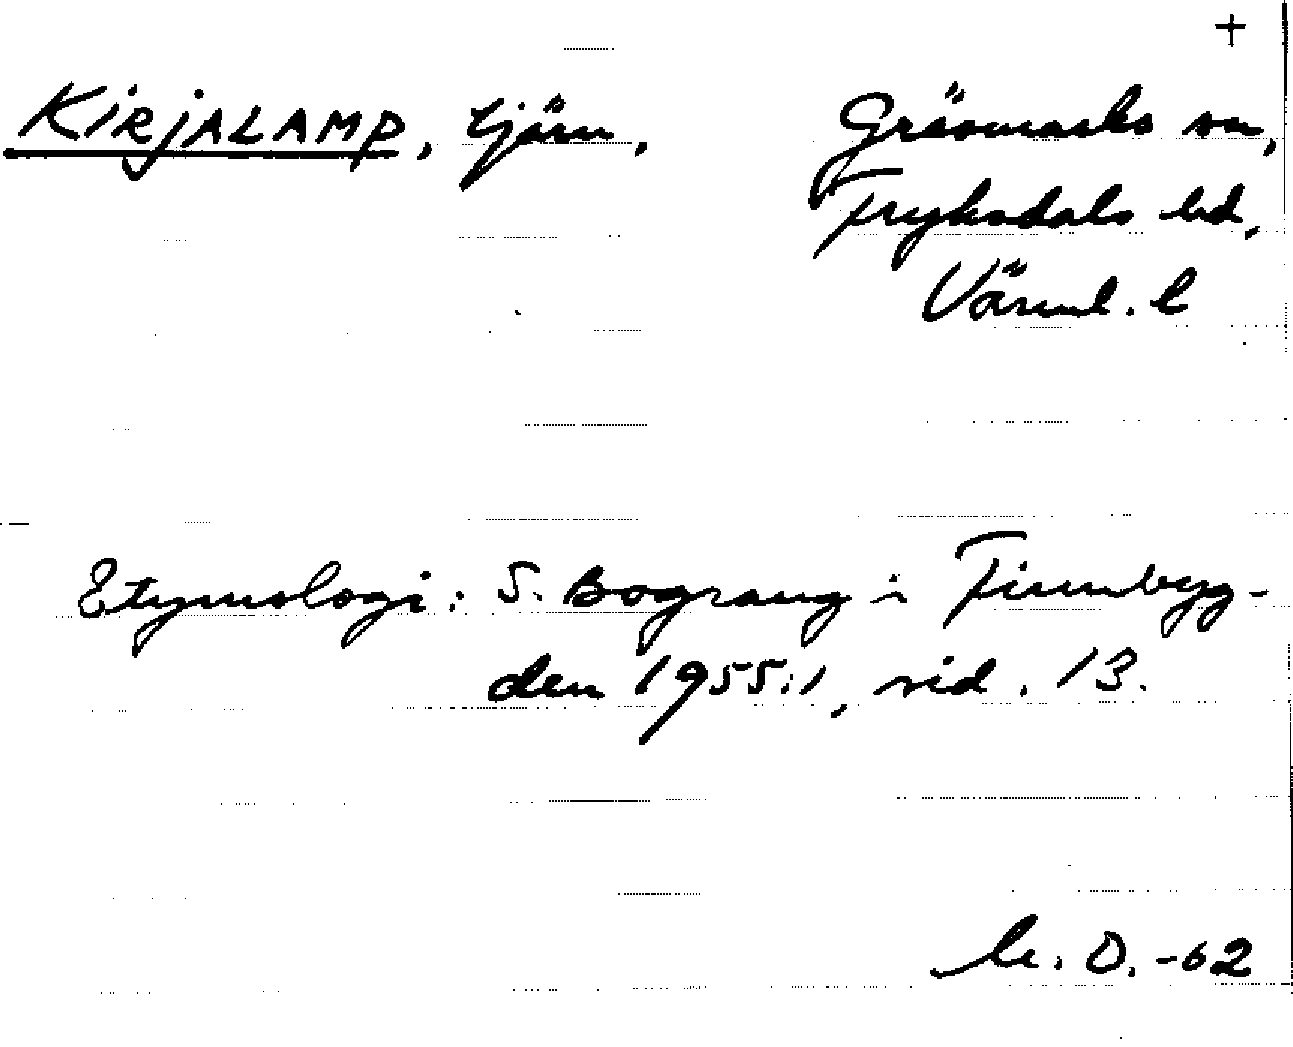 +
KIRJALAMP, tjärn, Gräsmarks sn,
Fryksdals hd,
Värml. l
Etymologi: S. Bograng i Finnbyg-
den 1955:1, sid. 13.
O. -62